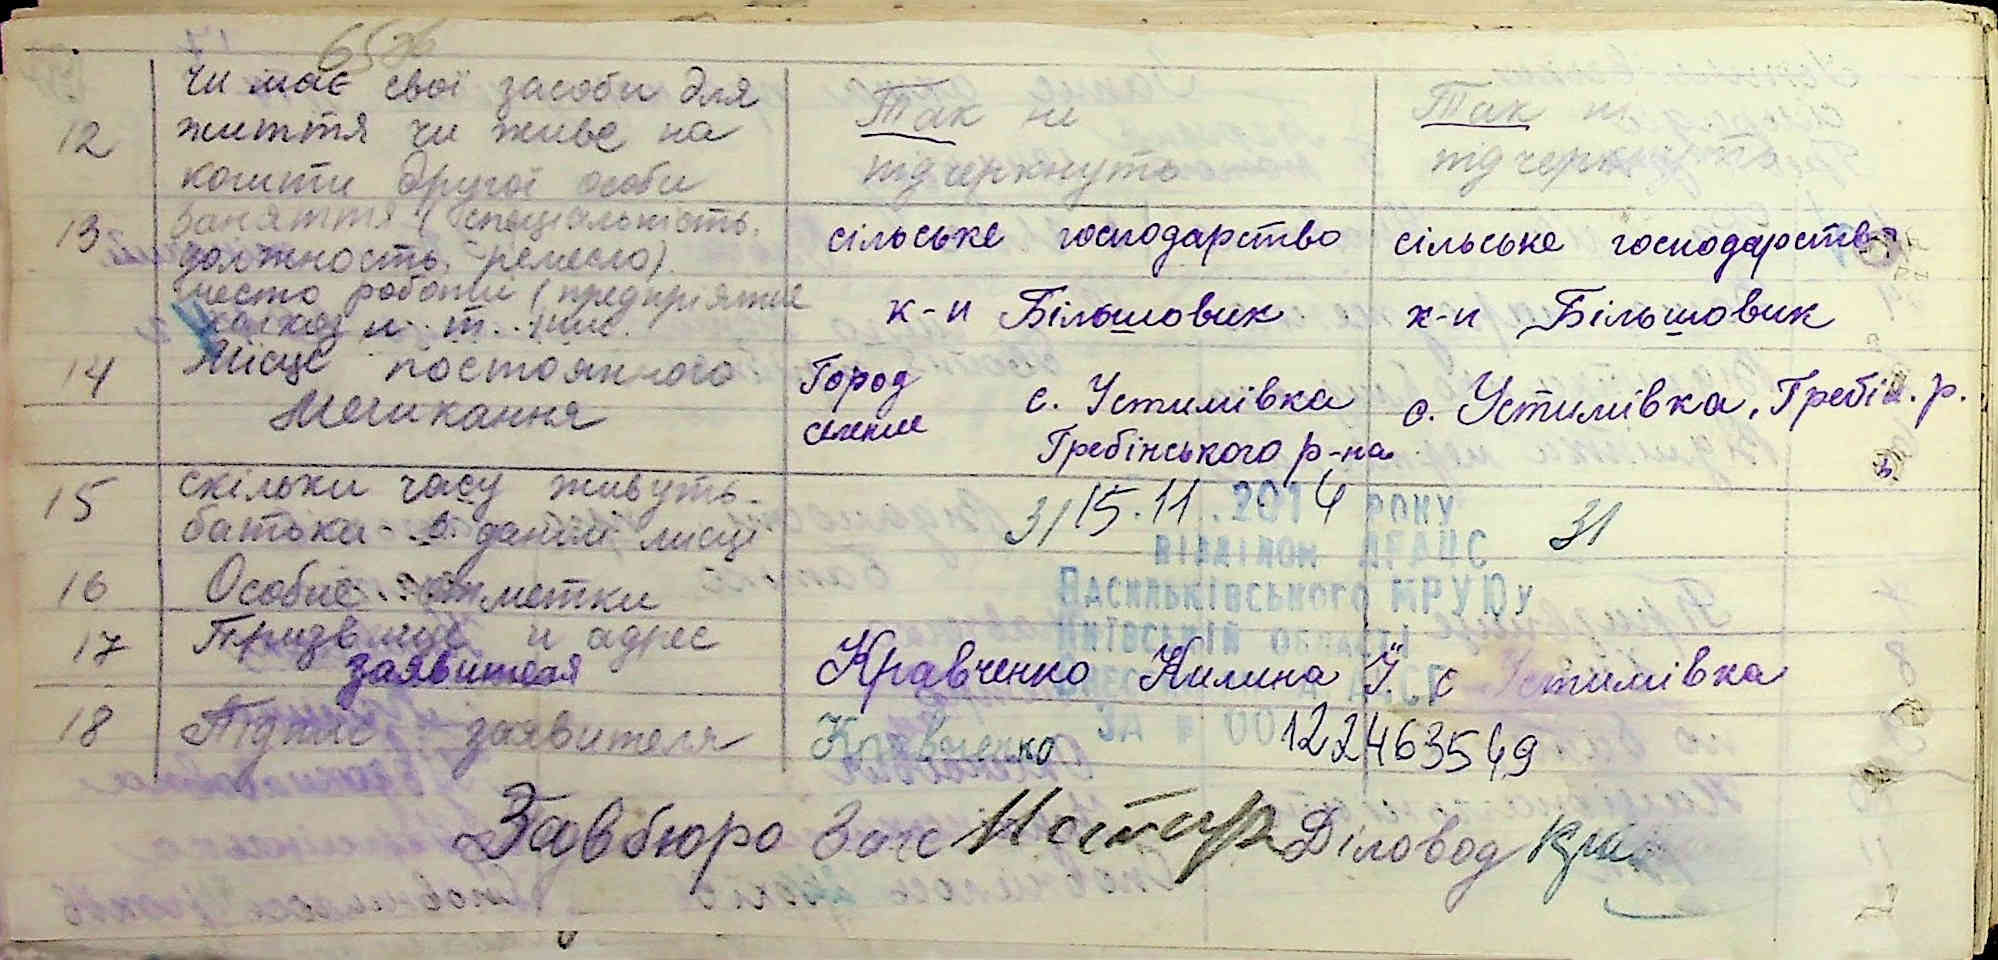 65зв
12 Чи має свої засоби для Так ні Так ні
життя чи живе на підчеркнуть підчеркнуть
кошти другої особи
13 Заняття (спеціальность,
должность, ремесло) сільське господарство сільське господарство
место роботи (предприятие к-п Більшовик к-п Більшовик
колхоз и т.
14 Місце постоянного Город с. Устимівка с. Устимівка, Гребін. р.
Мешкання селение Гребінського р-на
15 скільки часу живуть 31 15.11.2014 року 31
батьки в данім місці відділом ДРАЦС
Васильківського МРУЮу
16 Особие отметки Київській області
17 Призвище и адрес
заявителя Кравченко Килина Й. с Устимівка
18 Підпис заявителя Кравченко за № 00122463549
Завбюро Загс Діловод